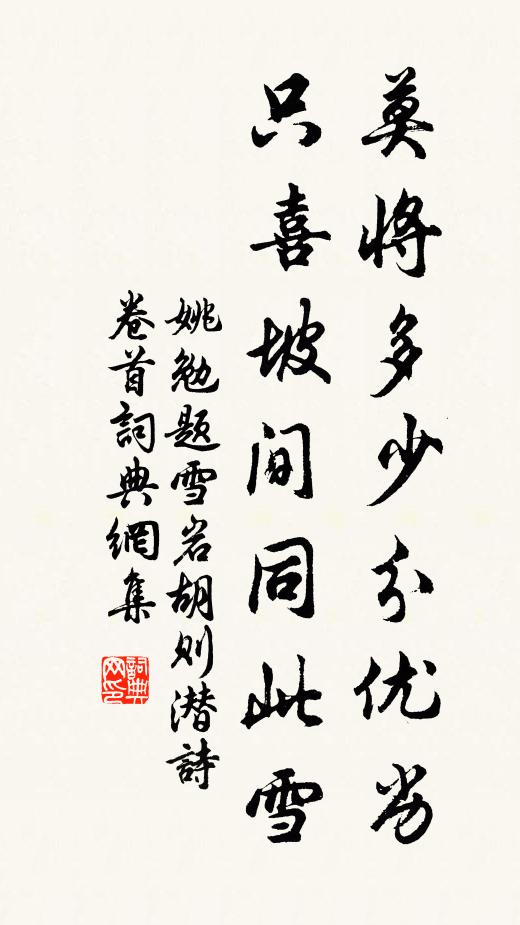 莫將多少分优劣
只喜坡间同此雪
姚勉題雪岩胡则潜詩
卷首詞典網集
詞典网印